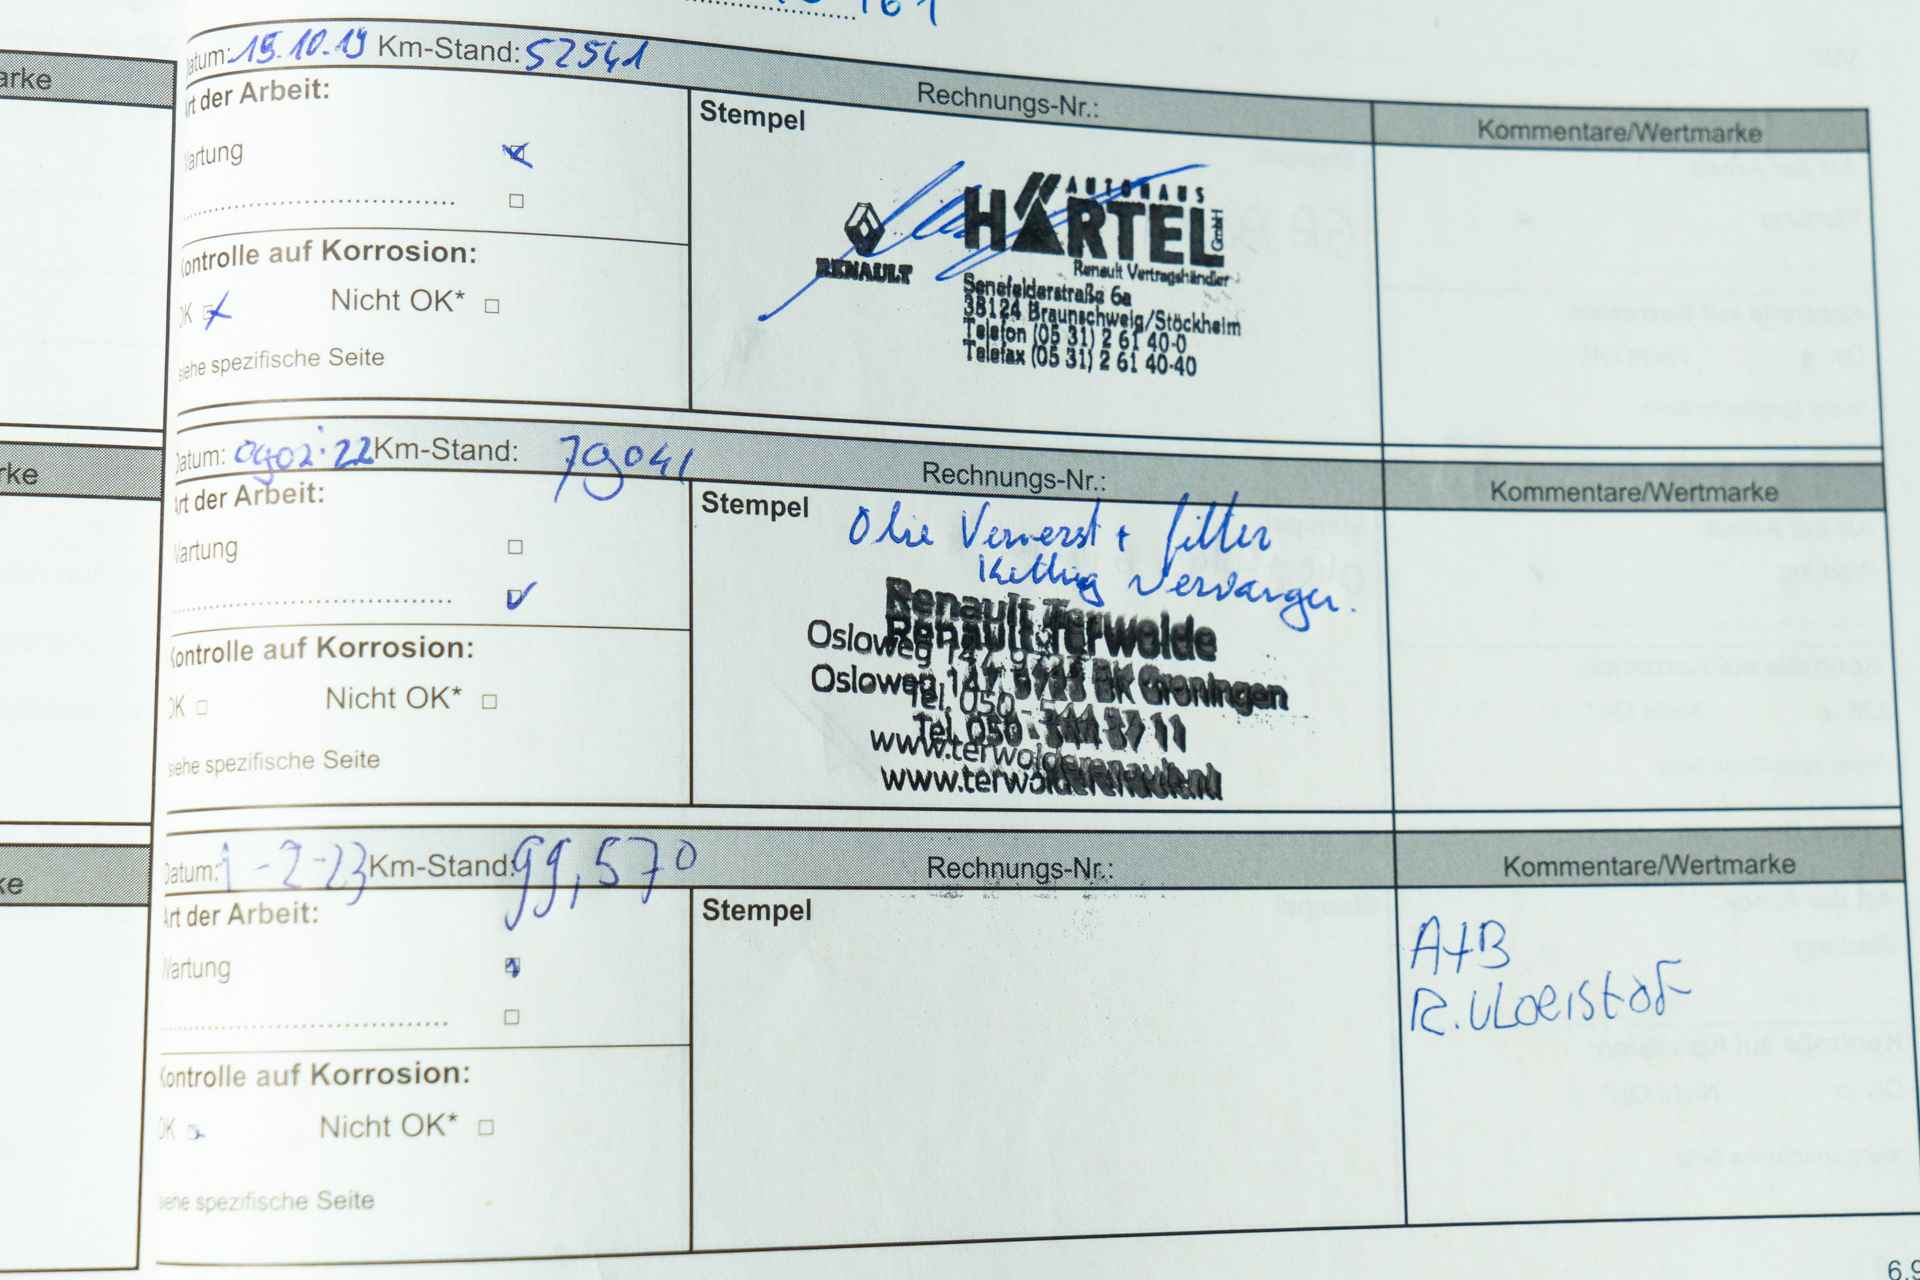 161
arke
Datum: 15.10.19 Km-Stand: 52541
Rechnungs-Nr.:
Kommentare/Wertmarke
Art der Arbeit:
Stempel
Wartung
AUTOHAUS
HÄRTEL GmbH
RENAULT
Renault Vertragshändler
Senefelderstraße 6a
38124 Braunschweig/Stöckheim
Telefon (05 31) 2 61 40-0
Telefax (05 31) 2 61 40-40
Kontrolle auf Korrosion:
OK Nicht OK*
siehe spezifische Seite
rke
Datum: 0902.22 Km-Stand: 79041
Rechnungs-Nr.:
Kommentare/Wertmarke
Art der Arbeit:
Stempel
Olie Ververst + filter
Ketting Vervangen.
Wartung
Renault Terwolde
Osloweg 147 9723 BK Groningen
Tel. 050 - 544 37 11
www.terwolderenault.nl
Kontrolle auf Korrosion:
OK Nicht OK*
siehe spezifische Seite
ke
Datum: 1-2-23 Km-Stand: 99,570
Rechnungs-Nr.:
Kommentare/Wertmarke
Art der Arbeit:
Stempel
A+B
R.vloeistof
Wartung
Kontrolle auf Korrosion:
OK Nicht OK*
siehe spezifische Seite
6.9